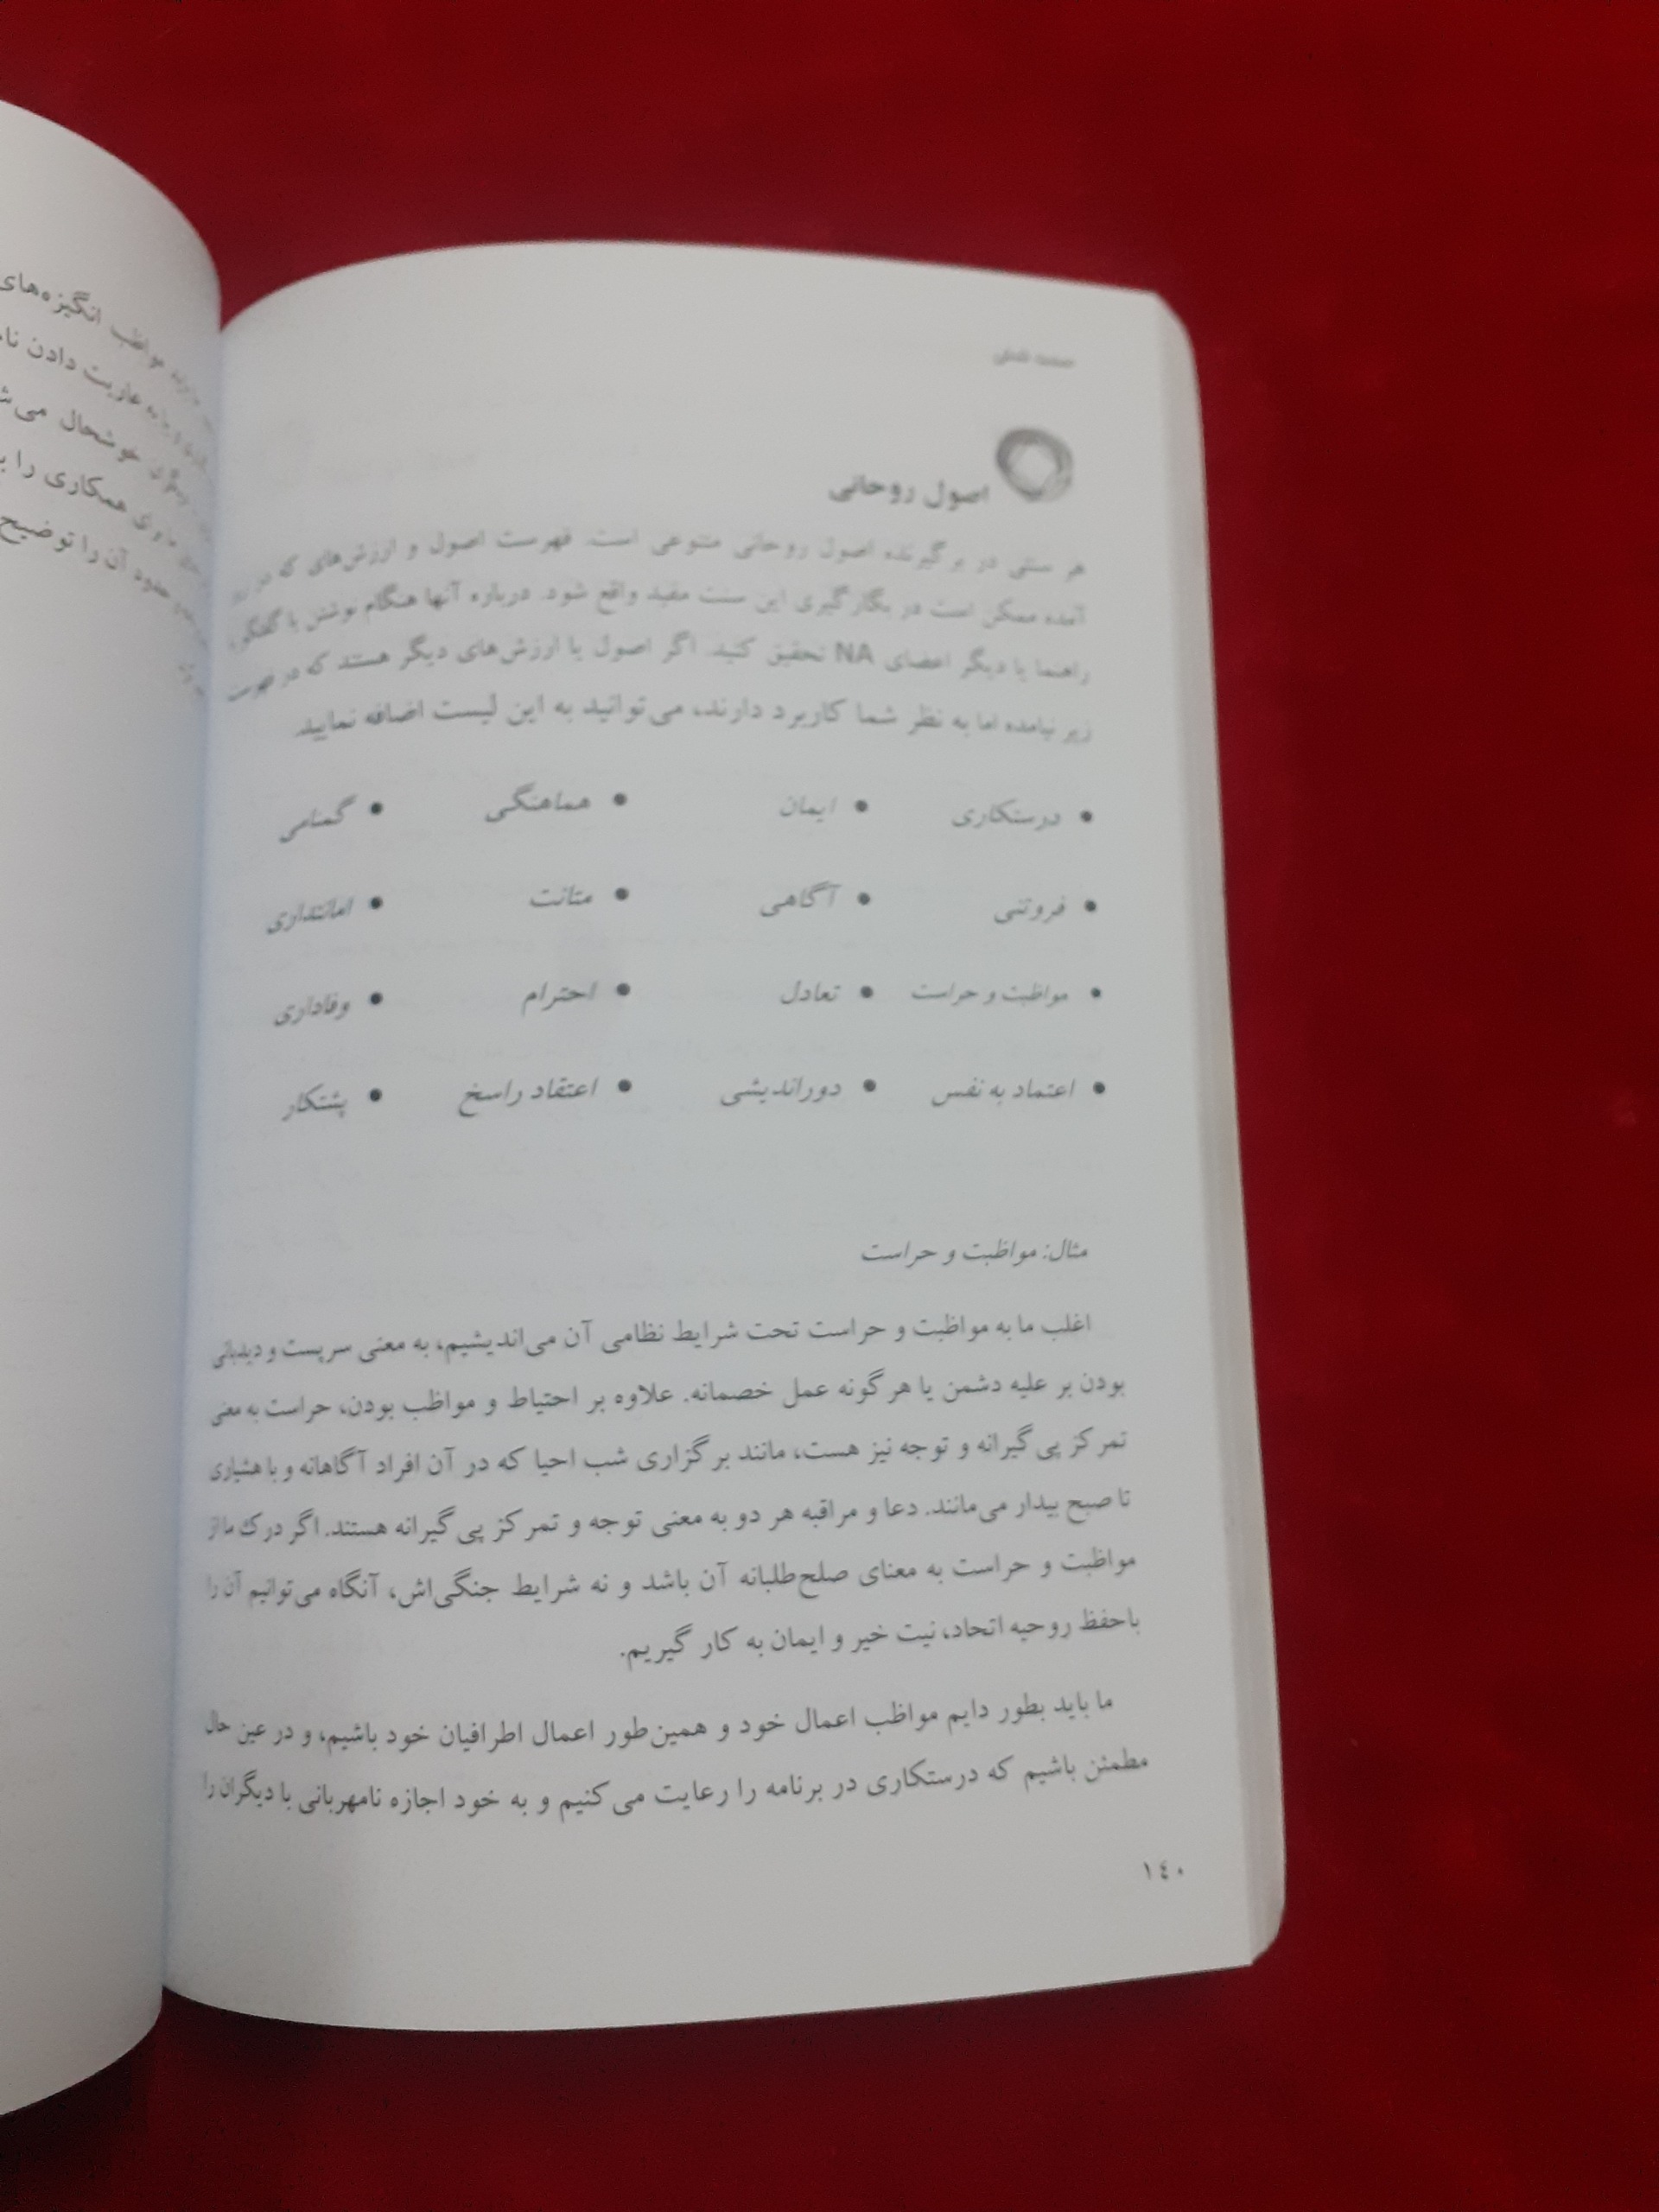 اصول روحانی
هر سنتی در برگیرنده اصول روحانی متنوعی است. فهرست اصول و ارزش‌های که در زیر
آمده ممکن است در بکارگیری این سنت مفید واقع شود. درباره آنها هنگام نوشتن یا گفتگو با
راهنما یا دیگر اعضای NA تحقیق کنید. اگر اصول یا ارزش‌های دیگر هستند که در فهرست
زیر نیامده اما به نظر شما کاربرد دارند، می‌توانید به این لیست اضافه نمایید.
• درستکاری • ایمان • هماهنگی • گمنامی
• فروتنی • آگاهی • متانت • امانتداری
• مواظبت و حراست • تعادل • احترام • وفاداری
• اعتماد به نفس • دوراندیشی • اعتقاد راسخ • پشتکار
مثال: مواظبت و حراست
اغلب ما به مواظبت و حراست تحت شرایط نظامی آن می‌اندیشیم، به معنی سرپست و دیدبانی
بودن بر علیه دشمن یا هرگونه عمل خصمانه. علاوه بر احتیاط و مواظب بودن، حراست به معنی
تمرکز پی‌گیرانه و توجه نیز هست، مانند برگزاری شب احیا که در آن افراد آگاهانه و با هشیاری
تا صبح بیدار می‌مانند. دعا و مراقبه هر دو به معنی توجه و تمرکز پی‌گیرانه هستند. اگر درک ما از
مواظبت و حراست به معنای صلح‌طلبانه آن باشد و نه شرایط جنگی‌اش، آنگاه می‌توانیم آن را
باحفظ روحیه اتحاد، نیت خیر و ایمان به کار گیریم.
ما باید بطور دایم مواظب اعمال خود و همین‌طور اعمال اطرافیان خود باشیم، و در عین حال
مطمئن باشیم که درستکاری در برنامه را رعایت می‌کنیم و به خود اجازه نامهربانی با دیگران را
١٤٠
مواظب انگیزه‌های
عاریت دادن
خوشحال
همکاری را
حدود آن را توضیح